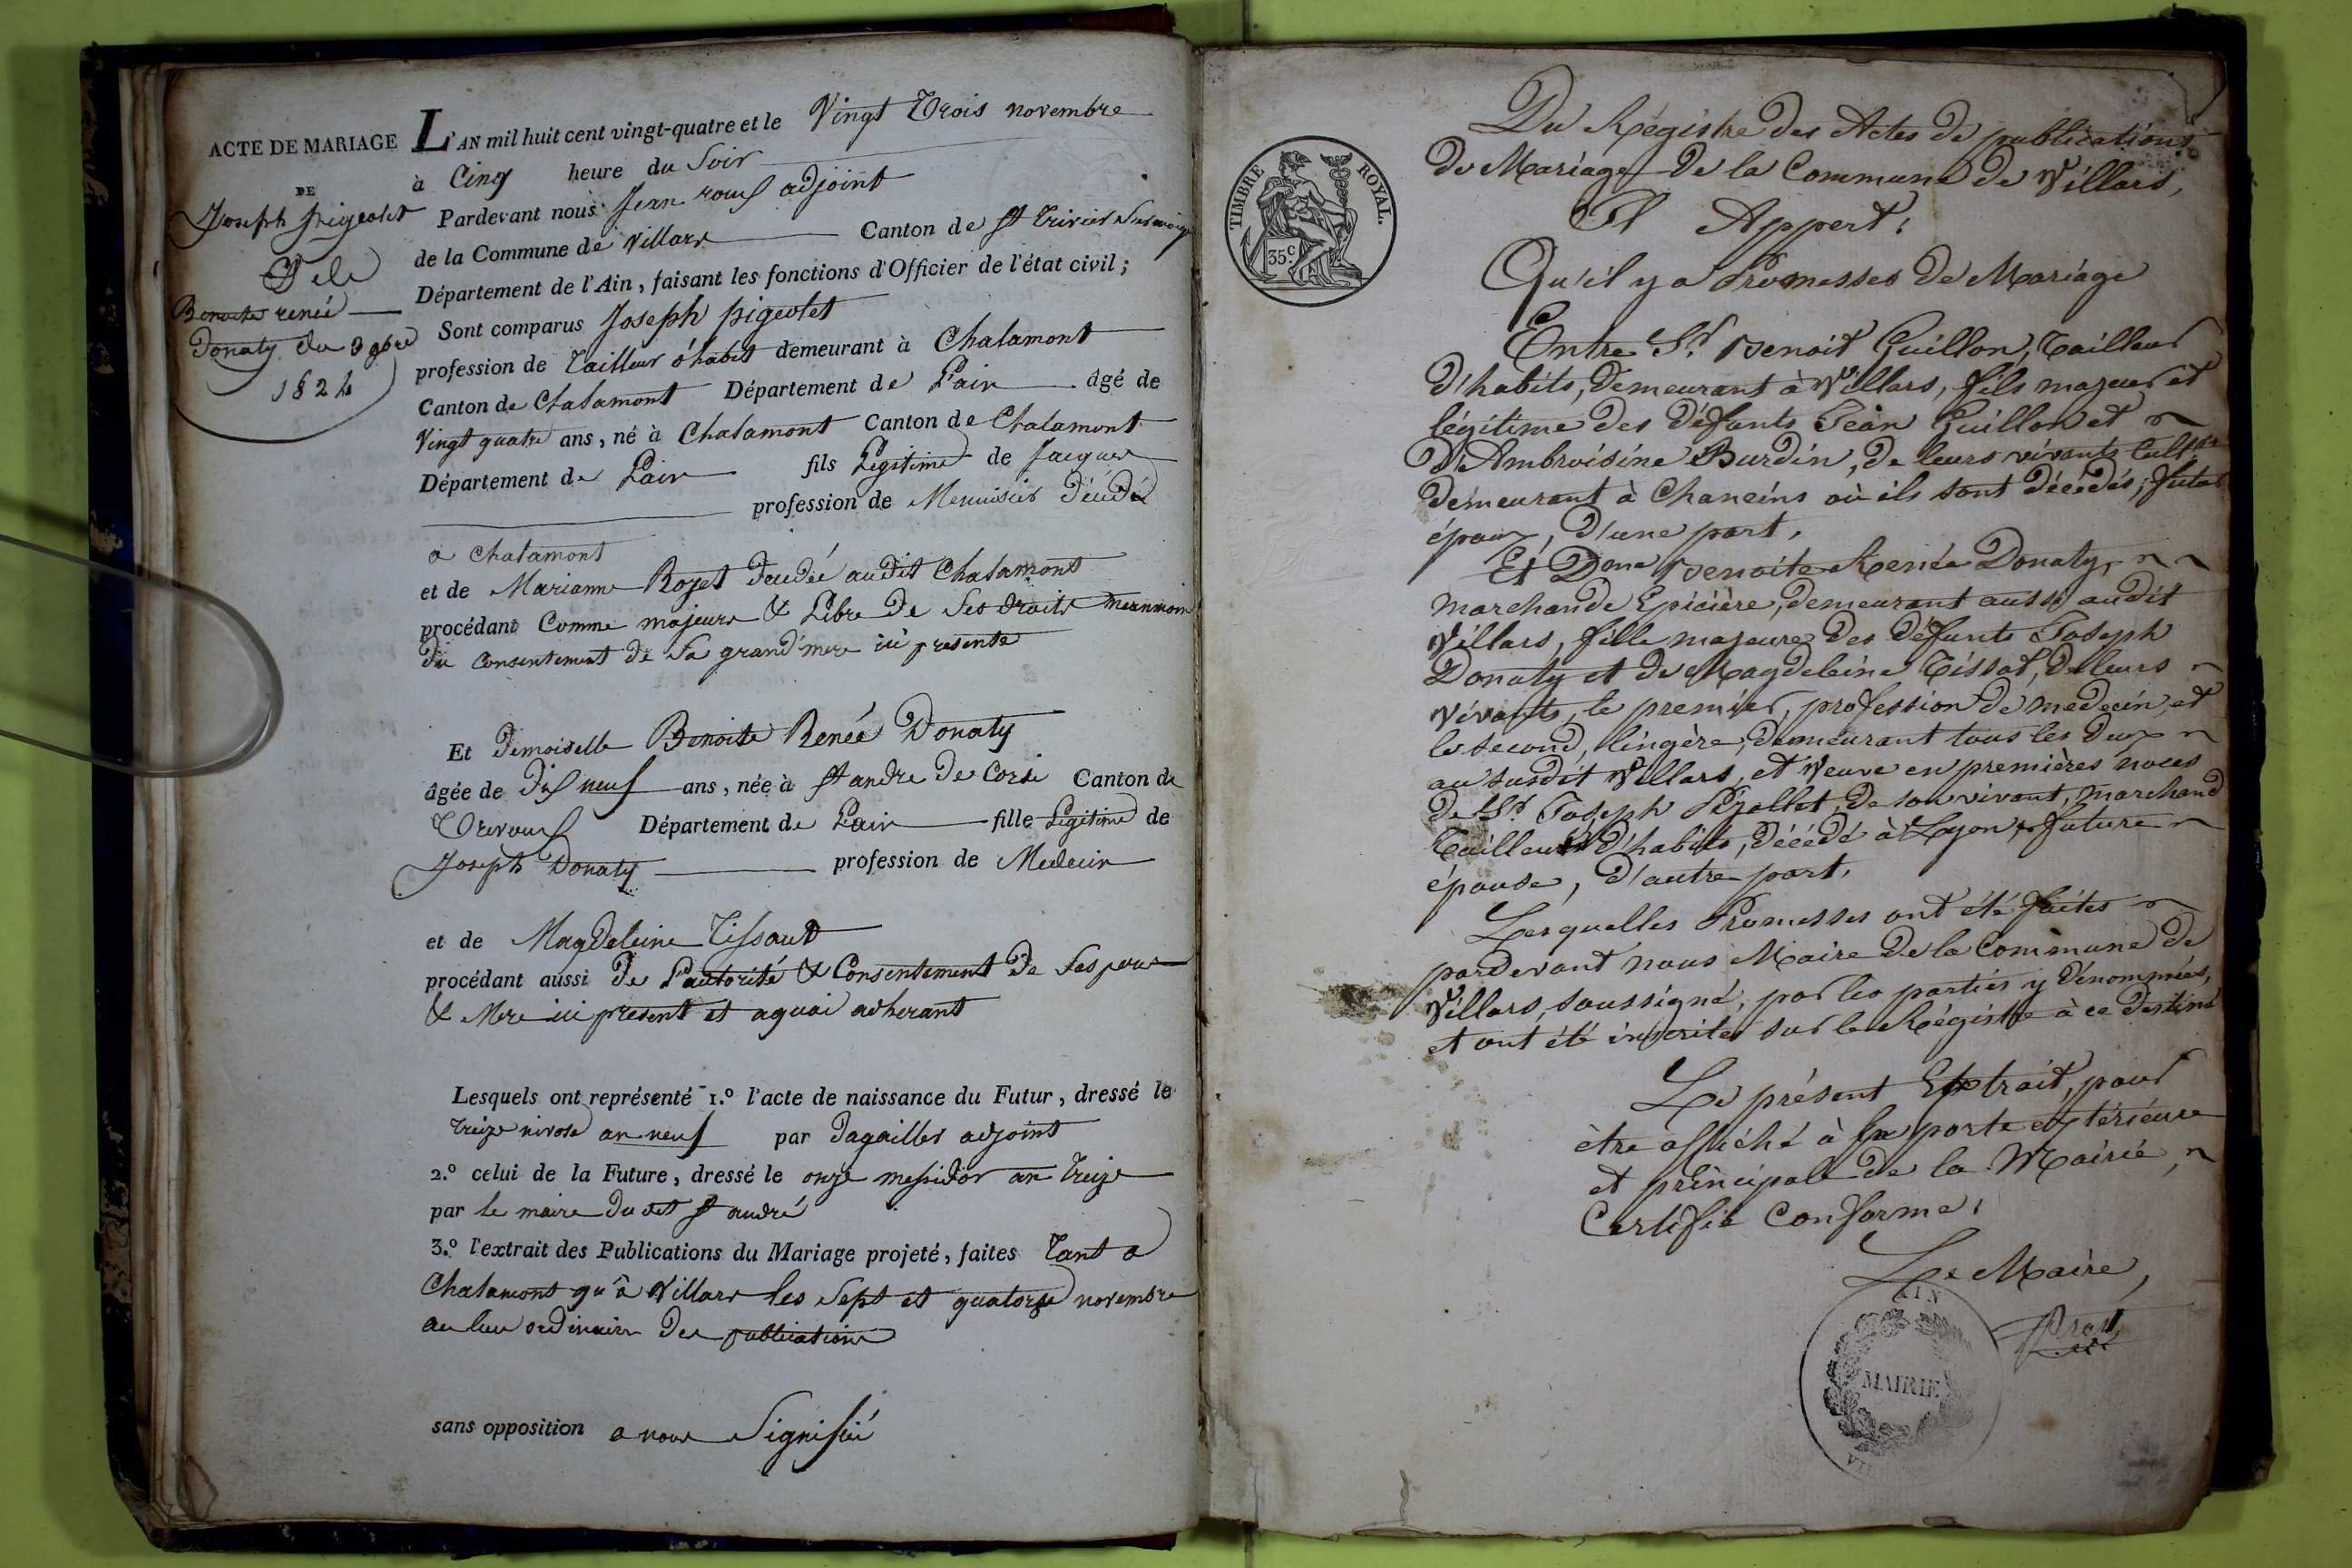 ACTE DE MARIAGE
DE
Joseph pigeolet
&
Benoite renée
Donaty du
1824
L'AN mil huit cent vingt-quatre et le Vingt Trois novembre
à Cinq heure du Soir
Pardevant nous Jean roux adjoint
de la Commune de Villars Canton de St Trivier
Département de l'Ain, faisant les fonctions d'Officier de l'état civil;
Sont comparus Joseph pigeolet
profession de Tailleur d'habit demeurant à Chalamont
Canton de Chalamont Département de L'ain âgé de
Vingt quatre ans, né à Chalamont Canton de Chalamont
Département de L'ain fils Légitime de Jacques
profession de Menuisier décédé
a Chalamont
et de Marianne Rozet decedée audit Chalamont
procédant Comme majeure & Libre de Ses droits
du Consentement de Sa grand'mere ici presente
Et Demoiselle Benoite Renée Donaty
âgée de Dix neuf ans, née à St andre De Corsi Canton de
Trevoux Département de L'ain fille Légitime de
Joseph Donaty profession de Medecin
et de Magdeleine Tissaut
procédant aussi De L'autorité & Consentement De Ses pere
& Mere ici present et aquoi adherant
Lesquels ont représenté 1.º l'acte de naissance du Futur, dressé le
treize nivose an neuf par Dagallier adjoint
2.º celui de la Future, dressé le onze messidor an treize
par le maire Du dit St andré
3.º l'extrait des Publications du Mariage projeté, faites Tant a
Chalamont qu'à Villars les Sept et quatorze novembre
au lieu ordinaire Des publications
sans opposition a nous Signifié
TIMBRE ROYAL.
35 c.
Du Régistre des Actes de publications
de Mariage De la Commune de Villars,
Il Appert:
Qu'il y a Promesses De Mariage
Entre Sr. Benoit Guillon, Tailleur
d'habits, demeurant à Villars, fils majeur et
légitime des défunts Jean Guillon et
D'Ambroisine Burdin, de leurs vivants cult.rs
demeurant à Chaneins où ils sont décédés; futur
époux, d'une part,
Et Dme Benoite Renée Donaty,
marchande Epicière, demeurant aussi audit
Villars, fille majeure des défunts Joseph
Donaty et de Magdeleine Tissot, de leurs
vivants, le premier, profession de medecin, et
le second, lingère, demeurant tous les deux
au susdit Villars, et veuve en premières noces
de Sr. Joseph Pijollet, de son vivant, marchand
Tailleur d'habits, décédé à Lyon, future
épouse, d'autre part,
Lesquelles Promesses ont été faites
pardevant nous Maire De la Commune de
Villars, soussigné, par les parties y dénommées,
et ont été inscrites sur le Régistre à ce destiné
Le présent Extrait, pour
être affiché à la porte extérieure
et principale de la Mairie,
Certifié Conforme,
Le Maire,
AIN
MAIRIE